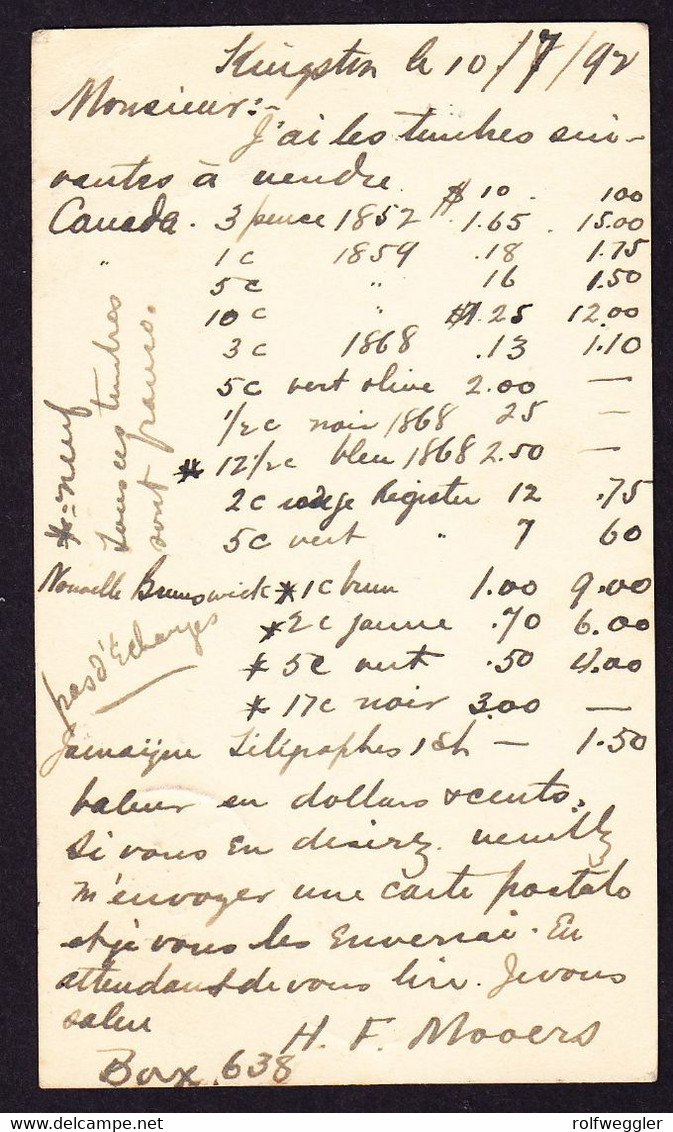 Kingston le 10/7/92
Monsieur:-
J'ai les timbres sui-
vantes à vendre
$ 10. 100
Canada. 3 pence 1852 1.65. 15.00
" 1c 1859 .18 1.75
5c " 16 1.50
10c " $1.25 12.00
3c 1868 .13 1.10
5c vert olive 2.00 —
1/2c noir 1868 25 —
* 12 1/2c bleu 1868 2.50 —
2c rouge Register 12 .75
5c vert " 7 60
Nouvelle Brunswick * 1c brun 1.00 9.00
* 2c jaune .70 6.00
* 5c vert .50 4.00
* 17c noir 3.00 —
Jamaique Télégraphes 1 sh — 1.50
* = neuf
tous ces timbres
sont francs.
pas d'Echanges
Valeur en dollars & cents.
Si vous en desirez veuillz
m'envoyer une carte postale
et je vous les Enverrai. En
attendant de vous lire. Je vous
salue
H. F. Mooers
Box 638
rolfweggler